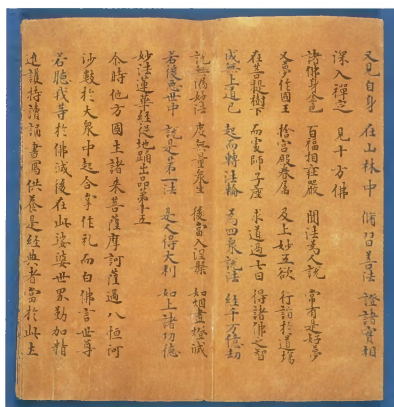 又見自身 在山林中 脩習善法 證諸實相
深入禪定 見十方佛
諸佛身金色 百福相莊嚴 聞法為人說 常有是好夢
又夢作國王 捨宮殿眷屬 及上妙五欲 行詣於道場
在菩提樹下 而處師子座 求道過七日 得諸佛之智
成無上道已 起而轉法輪 為四眾說法 經千万億劫
說無漏妙法 度無量眾生 後當入涅槃 如烟盡燈滅
若後惡世中 說是第一法 是人得大利 如上諸功德
妙法蓮華經從地踊出品第十五
尒時他方國土諸来菩薩摩訶薩過八恒河
沙數於大眾中起合掌作礼而白佛言世尊
若聽我等於佛滅後在此娑婆世界懃加精
進護持讀誦書寫供養是經典者當於此土